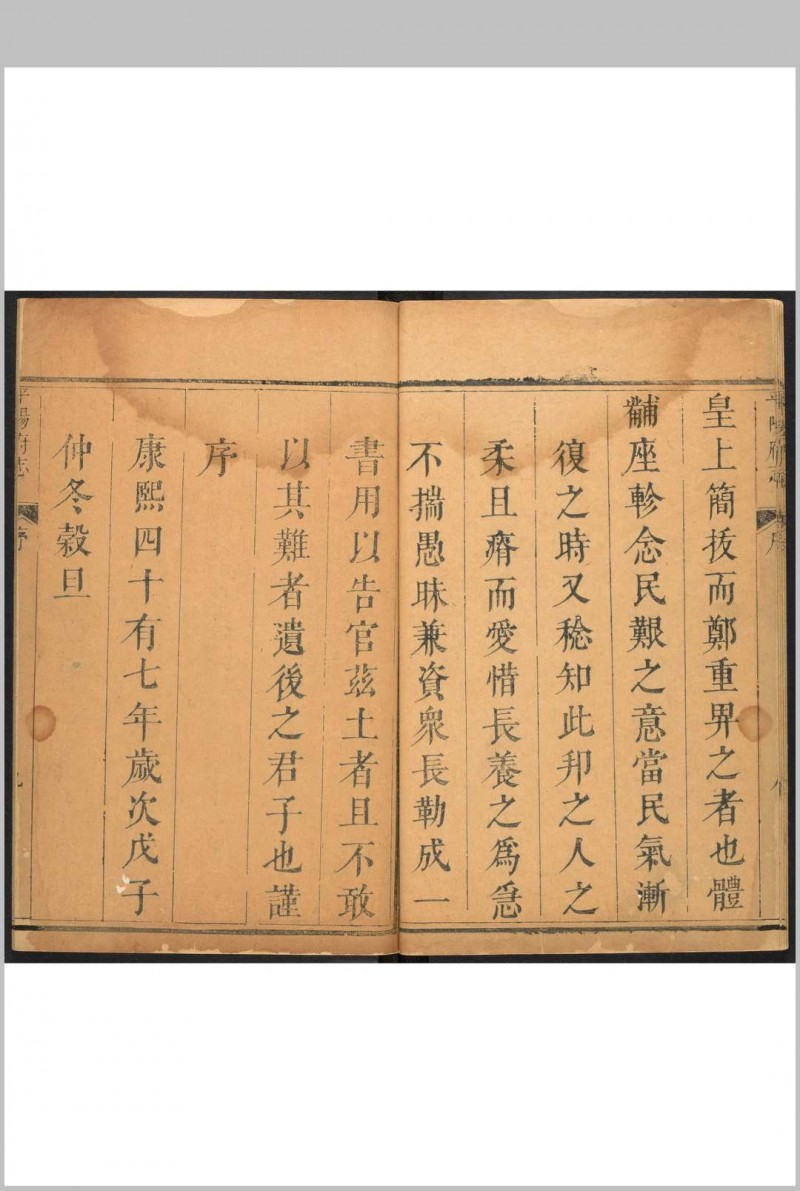 皇上簡拔而鄭重畀之者也體
黼座軫念民艱之意當民氣漸
復之時又稔知此邦之人之
柔且瘠而愛惜長養之爲急
不揣愚昧兼資衆長勒成一
書用以告官茲土者且不敢
以其難者遺後之君子也謹
序
康熙四十有七年歲次戊子
仲冬穀旦
平陽府志
序
平陽府志
序